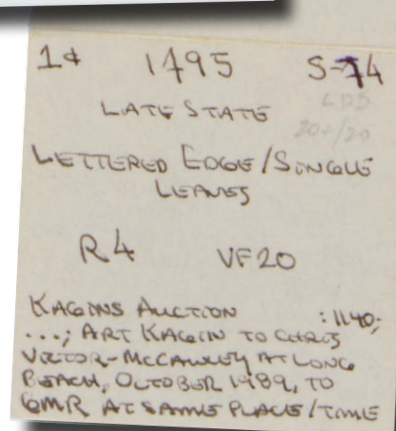 1¢ 1795 S-74
LATE STATE LDS
20+/20
LETTERED EDGE/SINGLE
LEAVES
R4 VF20
KAGINS AUCTION :1140;
...; ART KAGIN TO CHRIS
VICTOR-MCCAWLEY AT LONG
BEACH, OCTOBER 1989, TO
GMR AT SAME PLACE/TIME